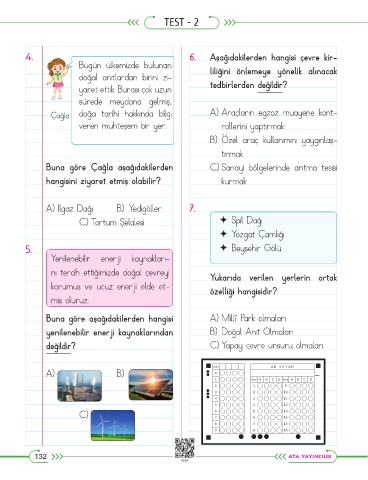 TEST - 2
4.
Bugün ülkemizde bulunan
doğal anıtlardan birini zi-
yaret ettik. Burası çok uzun
sürede meydana gelmiş,
doğa tarihi hakkında bilgi
veren muhteşem bir yer.
Çağla
Buna göre Çağla aşağıdakilerden
hangisini ziyaret etmiş olabilir?
A) Ilgaz Dağı B) Yedigöller
C) Tortum Şelalesi
5.
Yenilenebilir enerji kaynakları-
nı tercih ettiğimizde doğal çevreyi
korumuş ve ucuz enerji elde et-
miş oluruz.
Buna göre aşağıdakilerden hangisi
yenilenebilir enerji kaynaklarından
değildir?
A) B)
C)
6. Aşağıdakilerden hangisi çevre kir-
liliğini önlemeye yönelik alınacak
tedbirlerden değildir?
A) Araçların egzoz muayene kont-
rollerini yaptırmak
B) Özel araç kullanımını yaygınlaş-
tırmak
C) Sanayi bölgelerinde arıtma tesisi
kurmak
7.
Spil Dağı
Yozgat Çamlığı
Beyşehir Gölü
Yukarıda verilen yerlerin ortak
özelliği hangisidir?
A) Millî Park olmaları
B) Doğal Anıt Olmaları
C) Yapay çevre unsuru olmaları
AD SOYAD
132
ATA YAYINCILIK